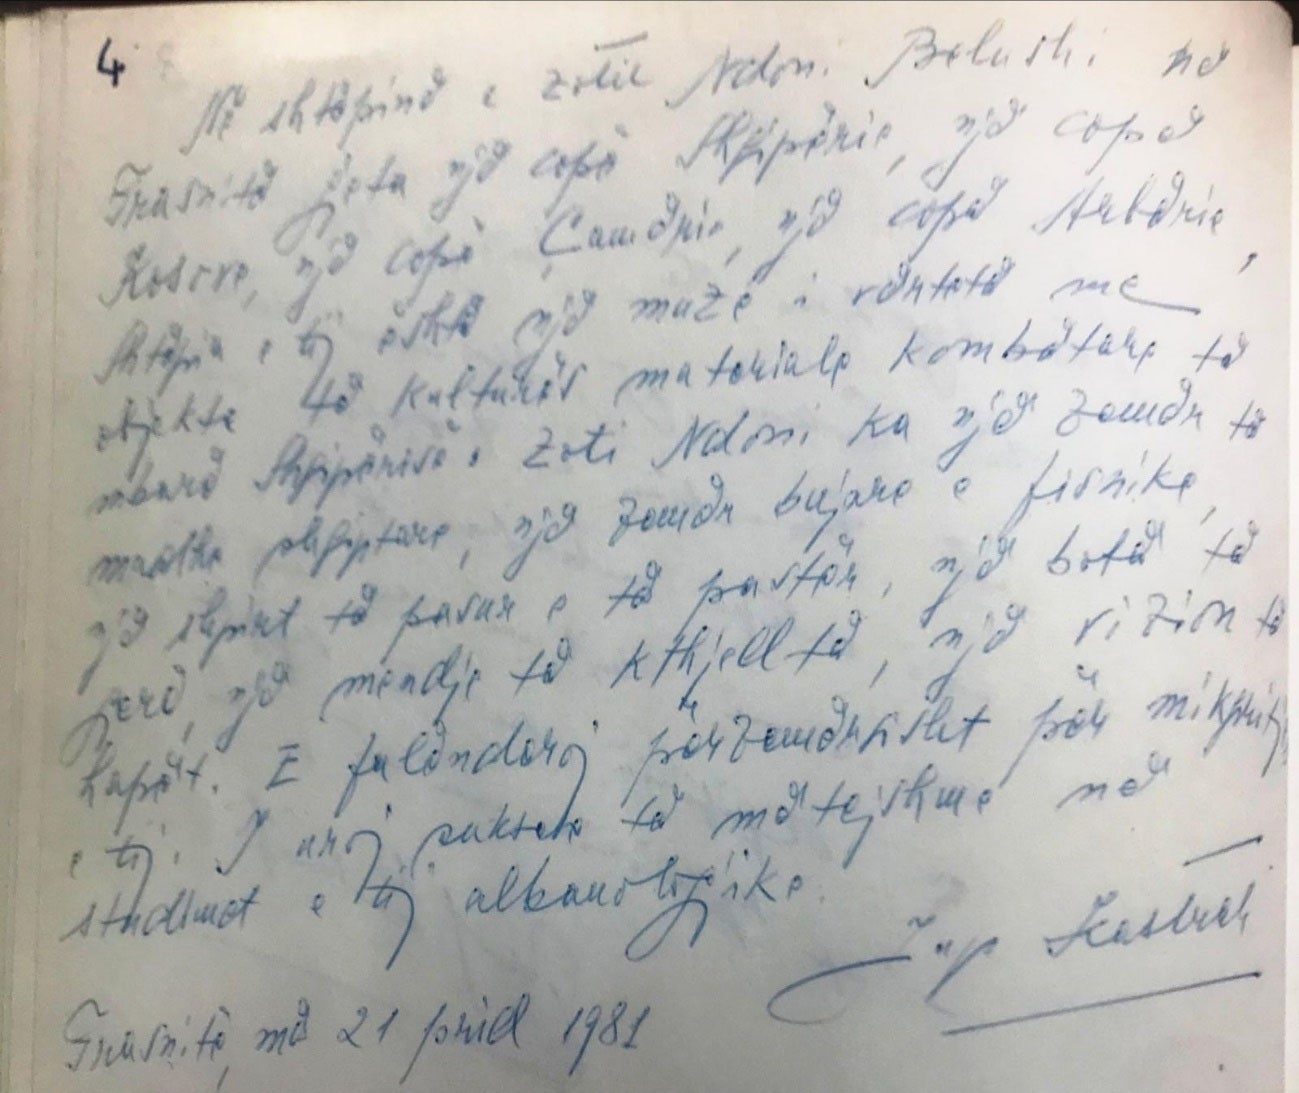 4
Në shtëpinë e zotit Ndoni Belushi në
Frasnitë gjeta një copë Shqipërie, një copë
Kosove, një copë Çamërie, një copë Arbërie,
Shtëpia e tij është një muze i vërtetë me
objekte të kulturës materiale kombëtare të
mbarë Shqipërisë. Zoti Ndoni ka një zemër të
madhe shqiptare, një zemër bujare e fisnike,
një shpirt të pasur e të pastër, një botë të
gjerë, një mendje të kthjelltë, një vizion të
hapët. E falënderoj përzemërsisht për mikpritj
e tij. I uroj suksese të mëtejshme në
studimet e tij albanologjike.
Jup Kastrati
Frasnitë, më 21 prill 1981